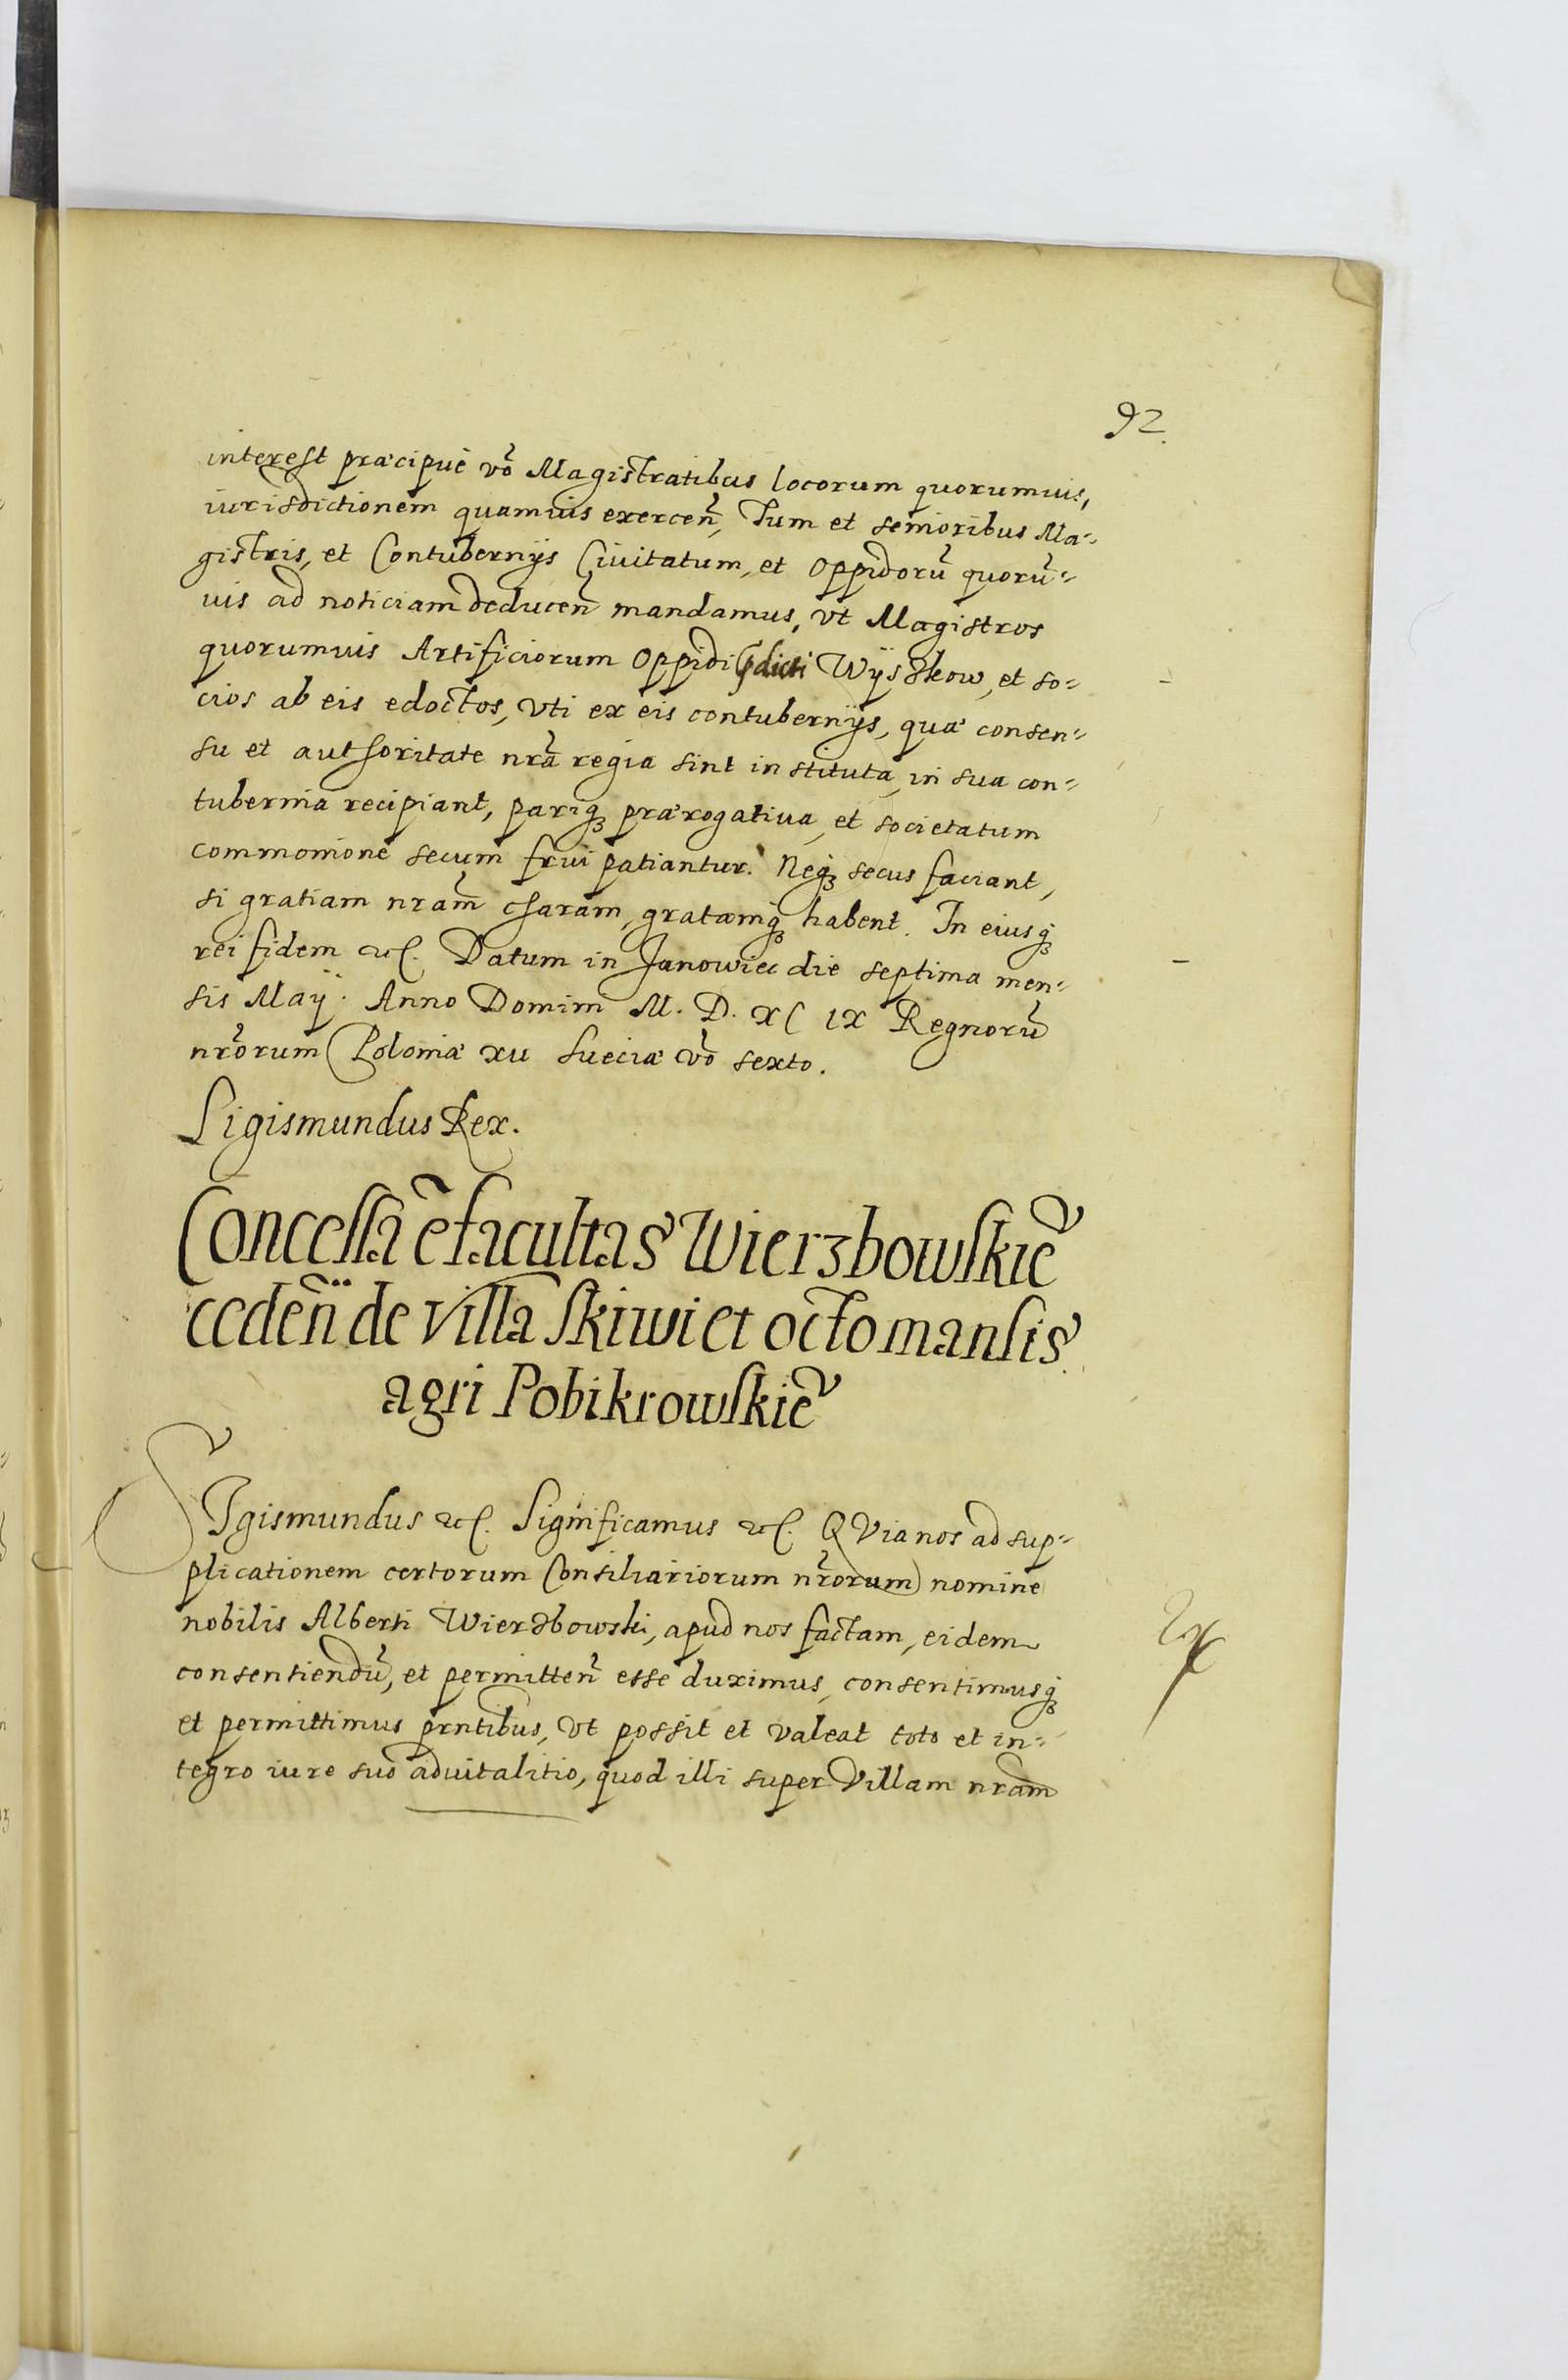 92.
interest præcipue võ Magistratibus locorum quorumuis,
iurisdictionem quamuis exerceñ, Tum et senioribus Ma=
gistris, et Contubernijs Ciuitatum, et Oppidorũ quorũ=
uis ad noticiam deduceñ mandamus, vt Magistros
quorumuis Artificiorum Oppidi pdicti Wyszkow, et so=
cios ab eis edoctos, vti ex eis contubernijs, quæ consen=
su et authoritate nrã regia sint instituta, in sua con=
tubernia recipiant, pariq; prærogatiua, et societatum
commonione secum frui patiantur. Neq; secus faciant,
si gratiam nram̃ charam, gratamq; habent. In eiusq;
rei fidem etc. Datum in Janowiec die septima men=
sis Maÿ. Anno Domini M. D. XC IX Regnorũ
nrõrum Poloniæ XII Sueciæ võ sexto.
Sigismundus Rex.
Concessa ẽ facultas Wierzbowskiẽ
cedeñ de villa Skiwi et octo mansis
agri Pobikrowskiẽ
SIgismundus etc. Significamus etc. QVia nos ad sup=
plicationem certorum Consiliariorum nrõrum nomine
nobilis Alberti Wierzbowski, apud nos factam, eidem
consentiendũ, et permitteñ esse duximus, consentimusq;
et permittimus prntibus, vt possit et valeat toto et in=
tegro iure suo aduitalitio, quod illi super Villam nram̃